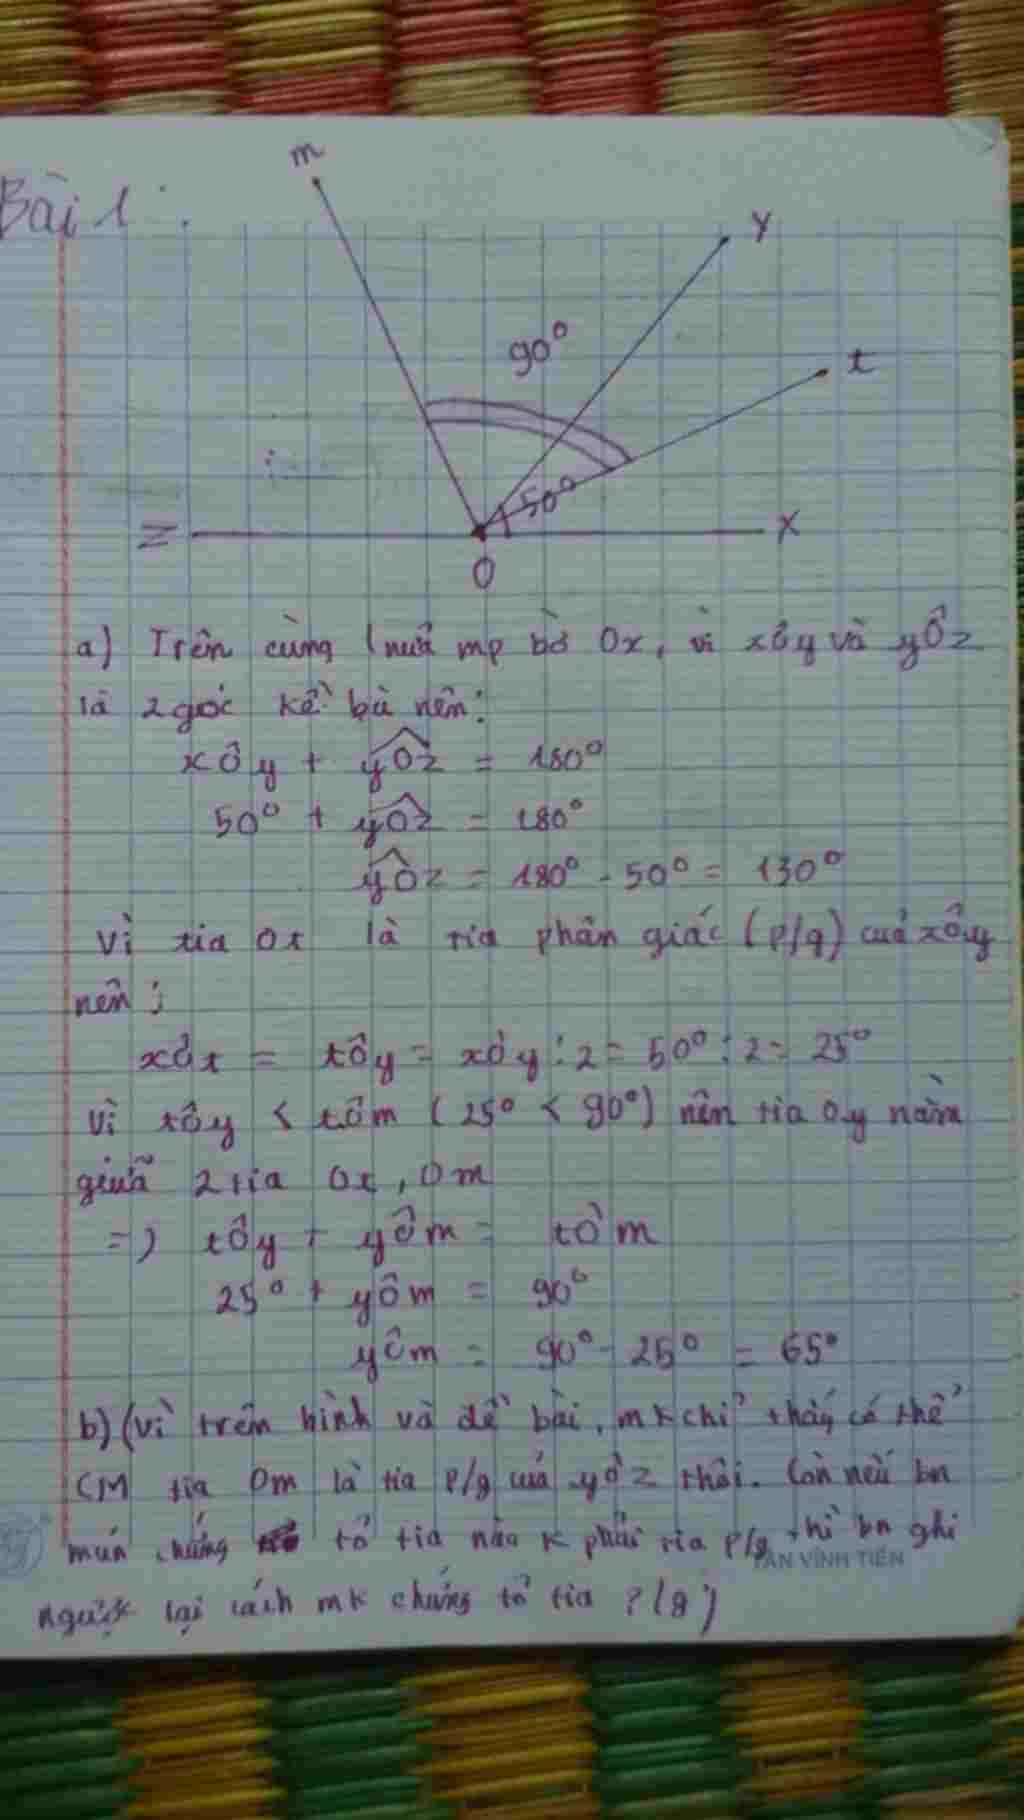 Bài 1:
m
y
90°
t
50°
z
x
O
a) Trên cùng 1 nửa mp bờ Ox, vì xÔy và yÔz
là 2 góc kề bù nên:
xÔy + yÔz = 180°
50° + yÔz = 180°
yÔz = 180° - 50° = 130°
Vì tia Ot là tia phân giác (p/g) của xÔy
nên:
xÔt = tÔy = xÔy : 2 = 50° : 2 = 25°
Vì tÔy < tÔm (25° < 90°) nên tia Oy nằm
giữa 2 tia Ot, Om
=) tÔy + yÔm = tÔm
25° + yÔm = 90°
yÔm = 90° - 25° = 65°
b) (Vì trên hình và đề bài, mk chỉ thấy có thể
CM tia Om là tia p/g của yÔz thôi. Còn nếu bn
mún chứng tỏ tia nào k phải tia p/g thì bn ghi
TÂN VĨNH TIẾN
ngược lại cách mk chứng tỏ tia p/g)